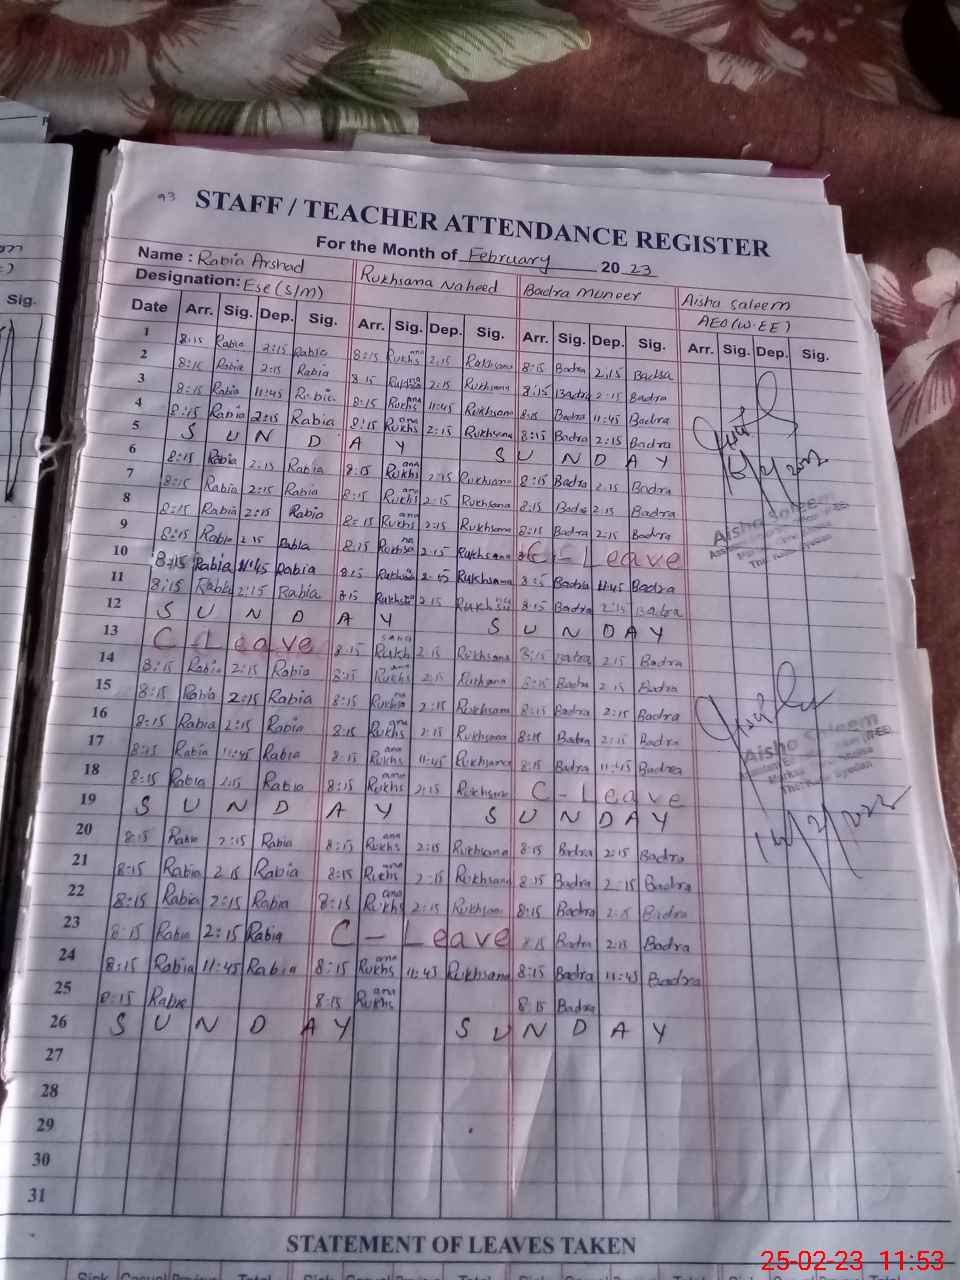 93
STAFF / TEACHER ATTENDANCE REGISTER
For the Month of February 20 23
Name : Rabia Arshad Rukhsana Naheed Badra muneer Aisha saleem
Designation: Ese (S/M) AEO (W.EE)
Date Arr. Sig. Dep. Sig. Arr. Sig. Dep. Sig. Arr. Sig. Dep. Sig. Arr. Sig. Dep. Sig.
Sig.
1 8:15 Rabia 2:15 Rabia 8:15 Rukhsana 2:15 Rukhsana 8:15 Badra 2:15 Badra
2 8:15 Rabia 2:15 Rabia 8:15 Rukhsana 2:15 Rukhsana 8:15 Badra 2:15 Badra
3 8:15 Rabia 11:45 Rabia 8:15 Rukhsana 11:45 Rukhsana 8:15 Badra 11:45 Badra
4 8:15 Rabia 2:15 Rabia 8:15 Rukhsana 2:15 Rukhsana 8:15 Badra 2:15 Badra
5 S U N D A Y S U N D A Y
6 8:15 Rabia 2:15 Rabia 8:15 Rukhsana 2:15 Rukhsana 8:15 Badra 2:15 Badra
7 8:15 Rabia 2:15 Rabia 8:15 Rukhsana 2:15 Rukhsana 8:15 Badra 2:15 Badra
8 8:15 Rabia 2:15 Rabia 8:15 Rukhsana 2:15 Rukhsana 8:15 Badra 2:15 Badra
9 8:15 Rabia 2:15 Rabia 8:15 Rukhsana 2:15 Rukhsana C - Leave
10 8:15 Rabia 11:45 Rabia 8:15 Rukhsana Rukhsana 8:15 Badra 11:45 Badra
11 8:15 Rabia 2:15 Rabia 8:15 Rukhsana 2:15 Rukhsana 8:15 Badra 2:15 Badra
12 S U N D A Y S U N D A Y
13 C - Leave 8:15 Rukhsana 2:15 Rukhsana 8:15 Badra 2:15 Badra
14 8:15 Rabia 2:15 Rabia 8:15 Rukhsana 2:15 Rukhsana 8:15 Badra 2:15 Badra
15 8:15 Rabia 2:15 Rabia 8:15 Rukhsana 2:15 Rukhsana 8:15 Badra 2:15 Badra
16 8:15 Rabia 2:15 Rabia 8:15 Rukhsana 2:15 Rukhsana 8:15 Badra 2:15 Badra
17 8:15 Rabia 11:45 Rabia 8:15 Rukhsana 11:45 Rukhsana 8:15 Badra 11:45 Badra
18 8:15 Rabia 2:15 Rabia 8:15 Rukhsana 2:15 Rukhsana C - Leave
19 S U N D A Y S U N D A Y
20 8:15 Rabia 2:15 Rabia 8:15 Rukhsana 2:15 Rukhsana 8:15 Badra 2:15 Badra
21 8:15 Rabia 2:15 Rabia 8:15 Rukhsana 2:15 Rukhsana 8:15 Badra 2:15 Badra
22 8:15 Rabia 2:15 Rabia 8:15 Rukhsana 2:15 Rukhsana 8:15 Badra 2:15 Badra
23 8:15 Rabia 2:15 Rabia C - Leave 8:15 Badra 2:15 Badra
24 8:15 Rabia 11:45 Rabia 8:15 Rukhsana 11:45 Rukhsana 8:15 Badra 11:45 Badra
25 8:15 Rabia 8:15 Rukhsana 8:15 Badra
26 S U N D A Y S U N D A Y
27
28
29
30
31
Aisha Saleem
Aisha Saleem
STATEMENT OF LEAVES TAKEN
25-02-23 11:53